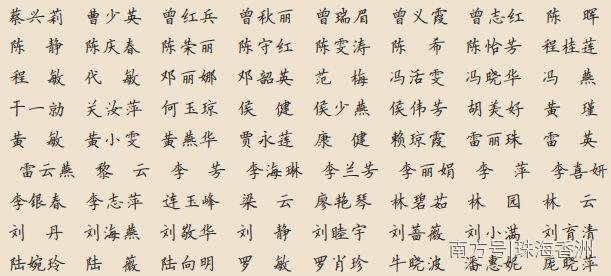 蔡兴莉 曹少英 曾红兵 曾秋丽 曾瑞眉 曾义霞 曾志红 陈晖
陈静 陈庆春 陈荣丽 陈守红 陈雯涛 陈希 陈怡芳 程桂莲
程敏 代敏 邓丽娜 邓韶英 范梅 冯活雯 冯晓华 冯燕
干一勍 关汝萍 何玉琼 侯健 侯少燕 侯伟芳 胡美好 黄瑾
黄敏 黄小雯 黄燕华 贾永莲 康健 赖琼霞 雷丽珠 雷英
雷云燕 黎云 李芳 李海琳 李兰芳 李丽娟 李萍 李喜妍
李银春 李志萍 连玉峰 梁云 廖艳琴 林碧茹 林园 林云
刘丹 刘海燕 刘敬华 刘静 刘睦宇 刘蔷薇 刘小满 刘育清
陆婉玲 陆薇 陆向明 罗敏 罗肖珍 牛晓波 潘惠妮 庞晓萍
南方号|珠海香洲